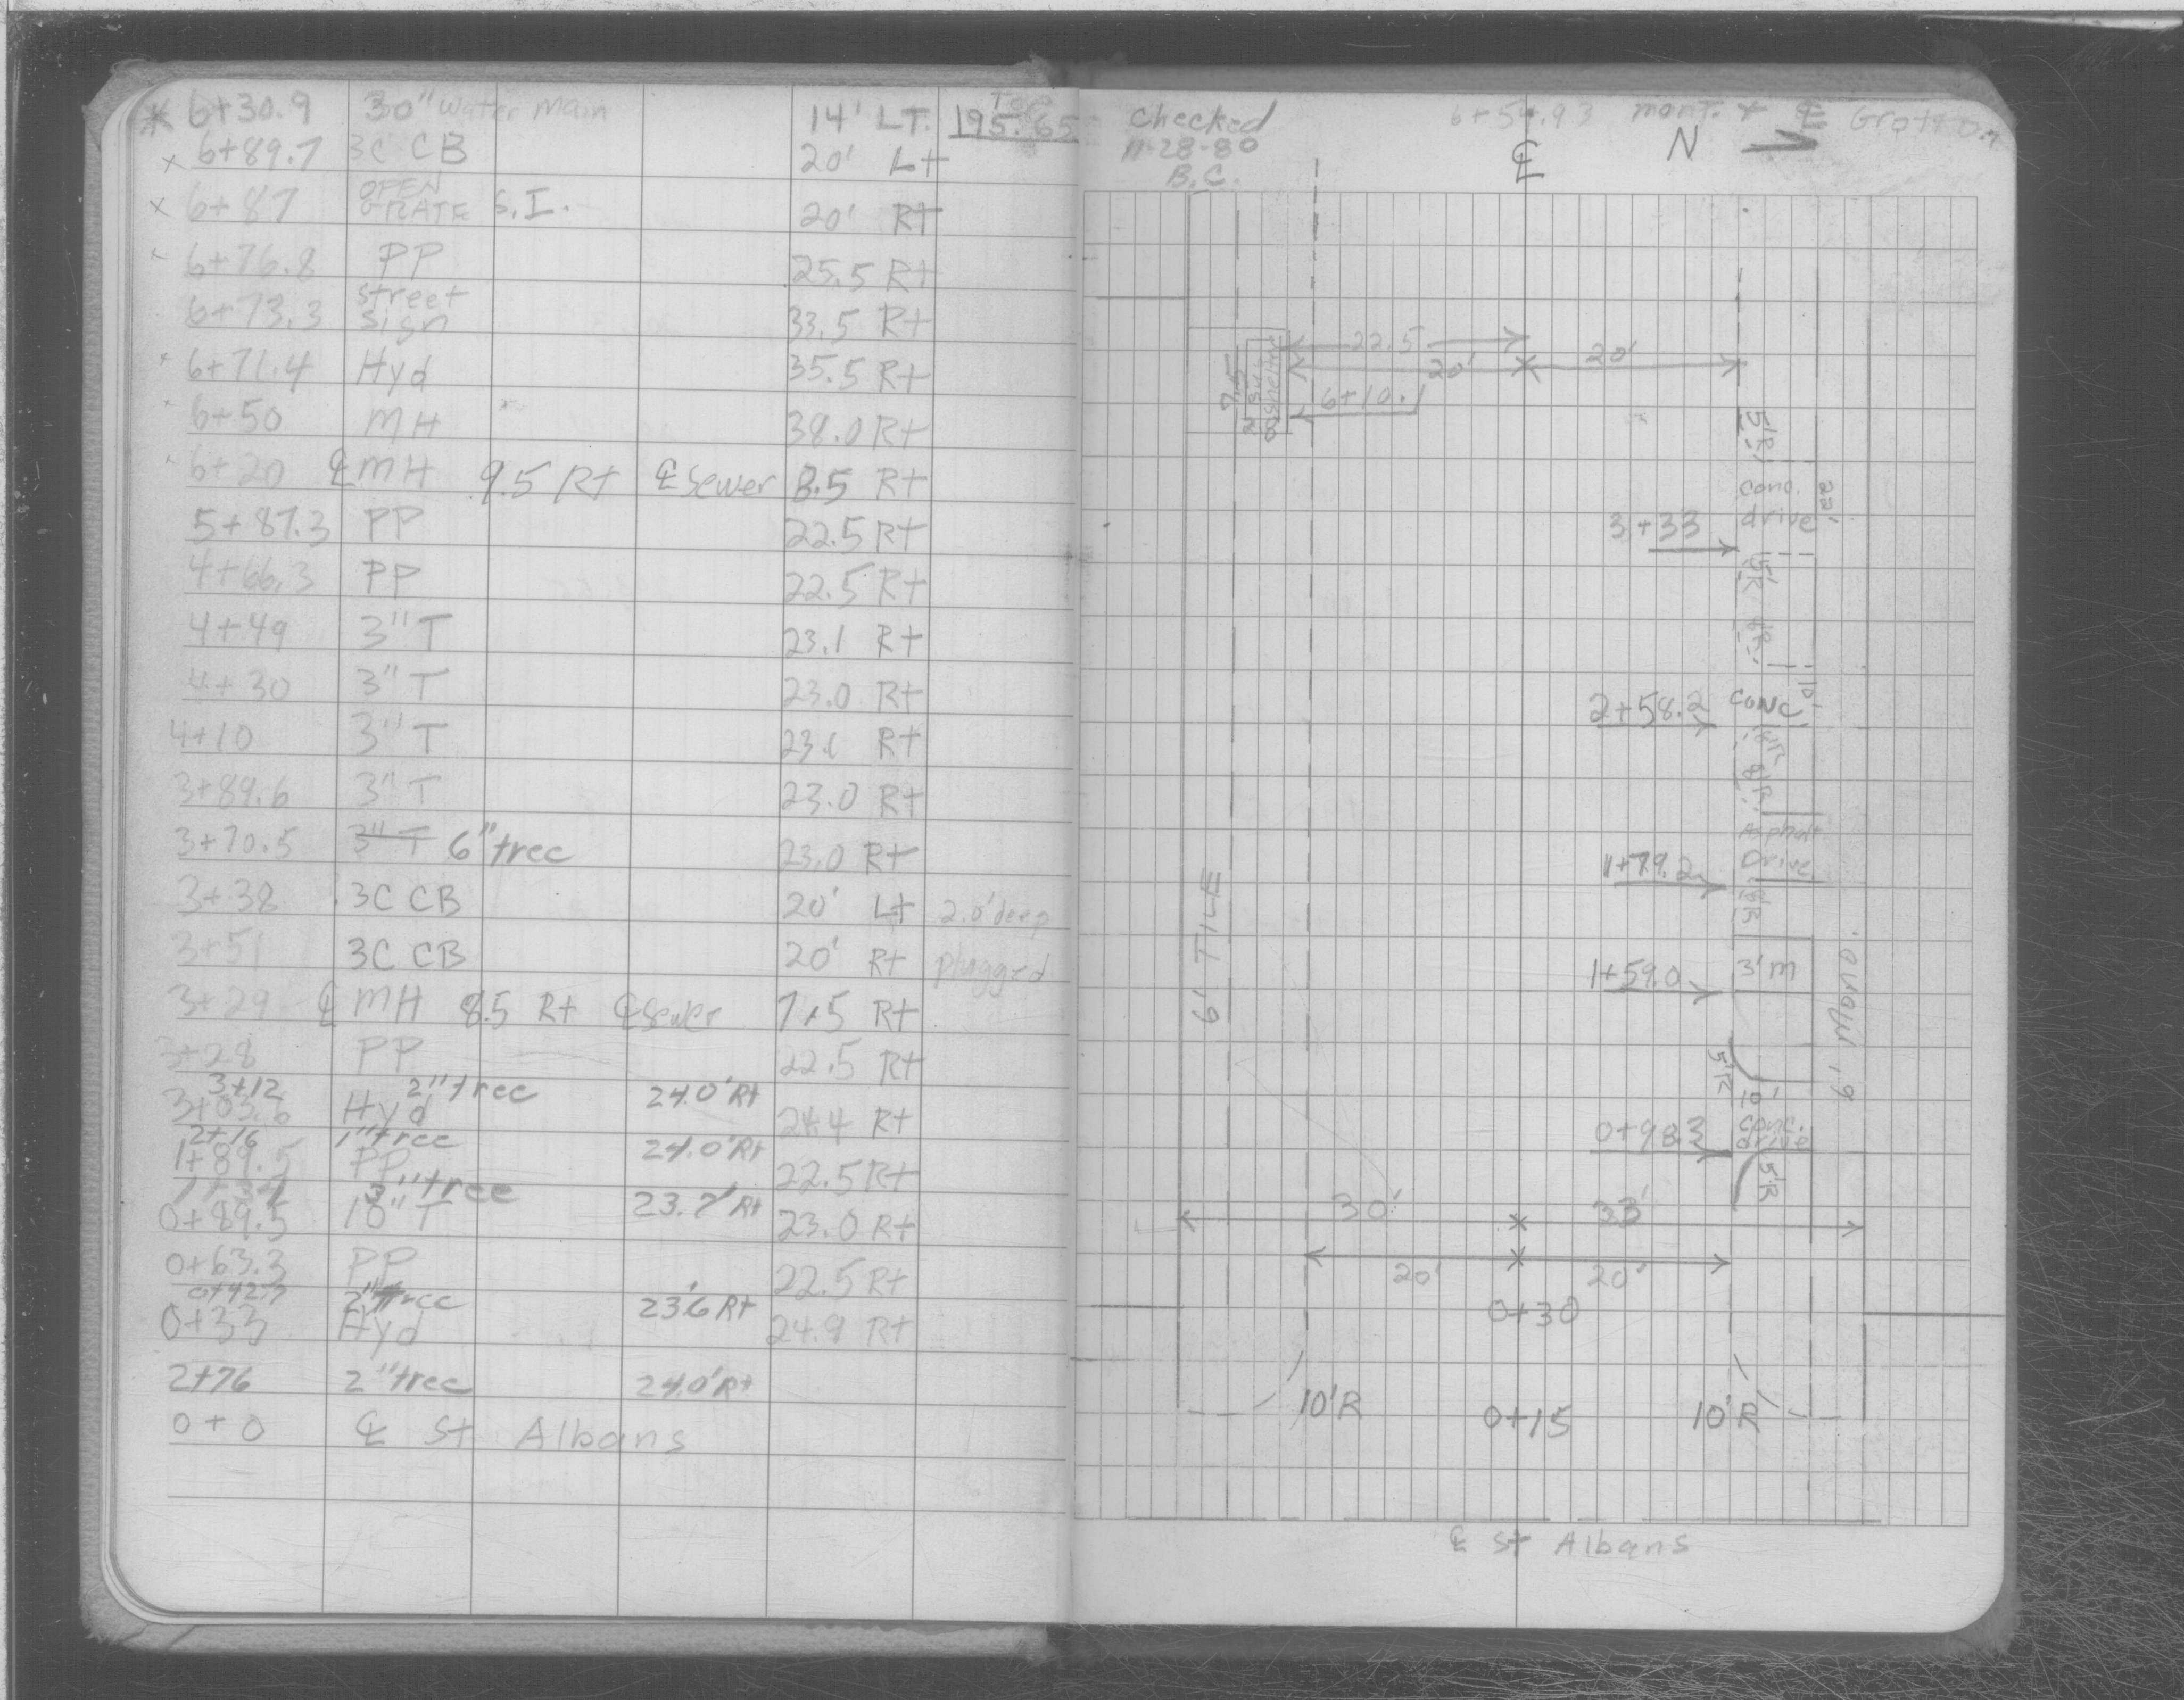 * 6+30.9 30" water main 14' LT. Top 195.65
x 6+89.7 3C CB 20' Lt
x 6+87 OPEN GRATE S.I. 20' Rt
6+76.8 PP 25.5 Rt
6+73.3 street sign 33.5 Rt
6+71.4 Hyd 35.5 Rt
6+50 MH 38.0 Rt
6+20 ℄ MH 9.5 Rt ℄ sewer 8.5 Rt
5+87.3 PP 22.5 Rt
4+66.3 PP 22.5 Rt
4+49 3" T 23.1 Rt
4+30 3" T 23.0 Rt
4+10 3" T 23.1 Rt
3+89.6 3" T 23.0 Rt
3+70.5 3" T 6" tree 23.0 Rt
3+38 3C CB 20' Lt 2.0' deep
3+51 3C CB 20' Rt plugged
3+29 ℄ MH 8.5 Rt ℄ sewer 7.5 Rt
3+28 PP 22.5 Rt
3+12 2" tree 24.0' Rt
3+03.6 Hyd 24.4 Rt
2+16 1" tree 24.0' Rt
1+89.5 PP 22.5 Rt
3" tree 23.7' Rt
0+89.5 18" T 23.0 Rt
0+63.3 PP 22.5 Rt
0+42.7 2" tree 23.6 Rt
0+33 Hyd 24.9 Rt
2+76 2" tree 24.0' Rt
0+0 ℄ St Albans
Checked
11-28-80
B.C.
6+54.93 mont. + ℄ Grotton
℄ N
22.5
20' 20'
6+10.1
7.5
Bus
shelter
5'R
conc.
drive
22'
3+33
5'R
8'R
10'
2+58.2 CONC
8'R
8'R
Asphalt
Drive
1+79.2
8'R
1+59.0 3' M
6' TILE
6' MONO.
5'R
10'
conc.
drive
0+98.3
5'R
30' 33'
20' 20'
0+30
10'R 0+15 10'R
℄ St Albans